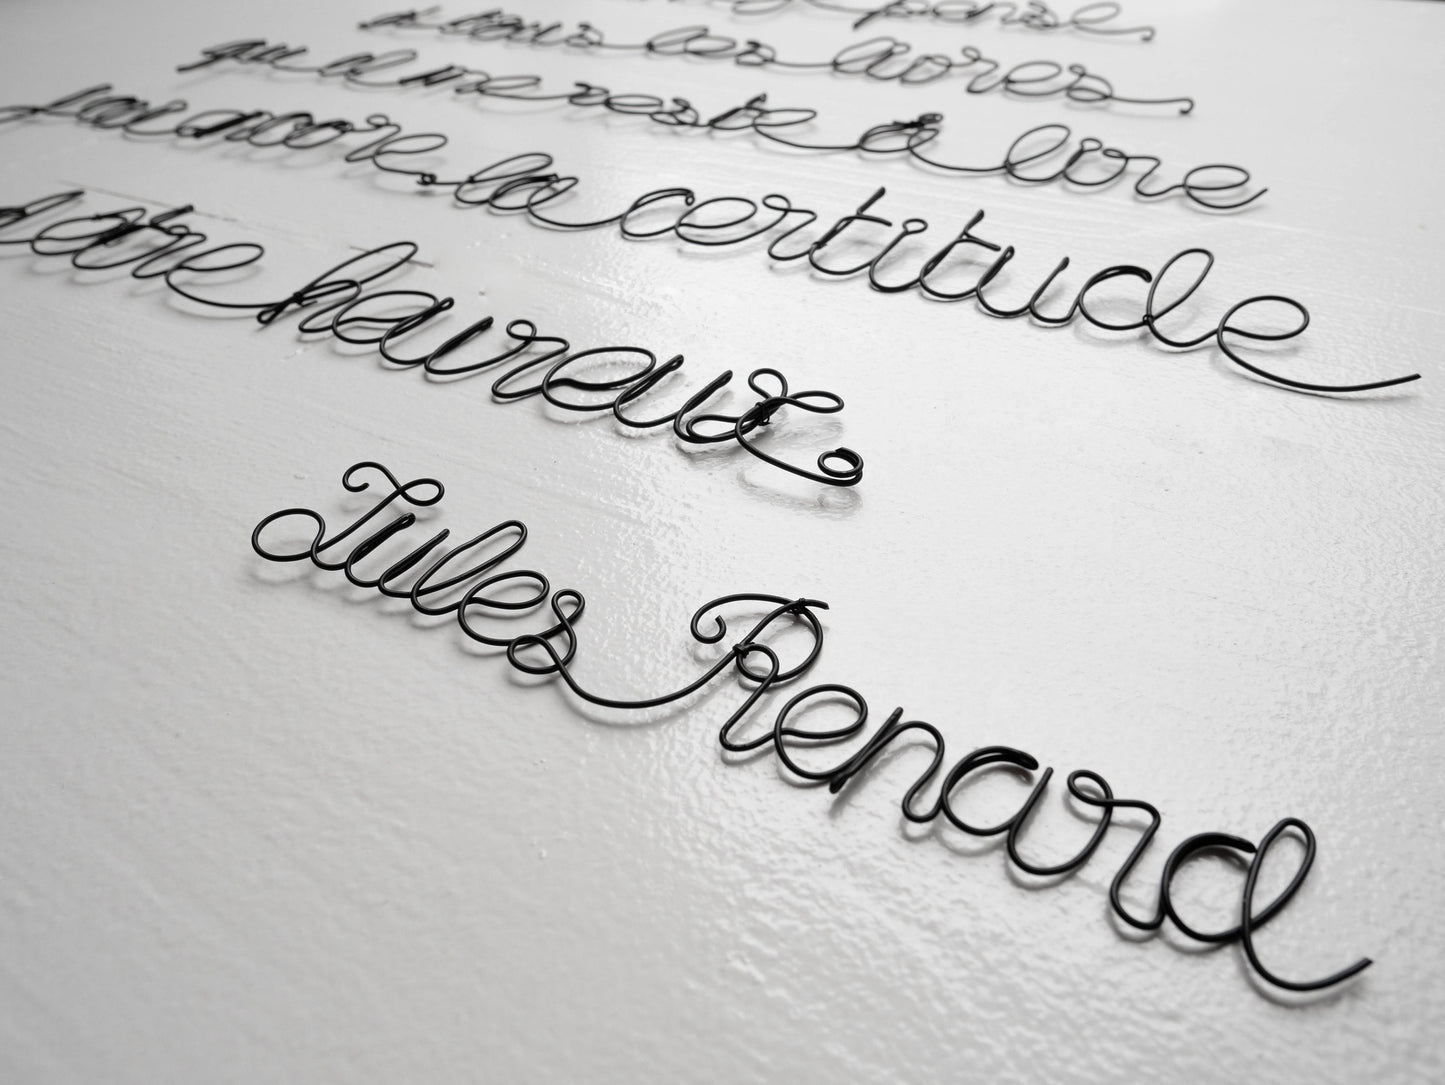 pense
à tous les livres
qu'il me reste à lire
j'ai encore la certitude
d'être heureux.
Jules Renard